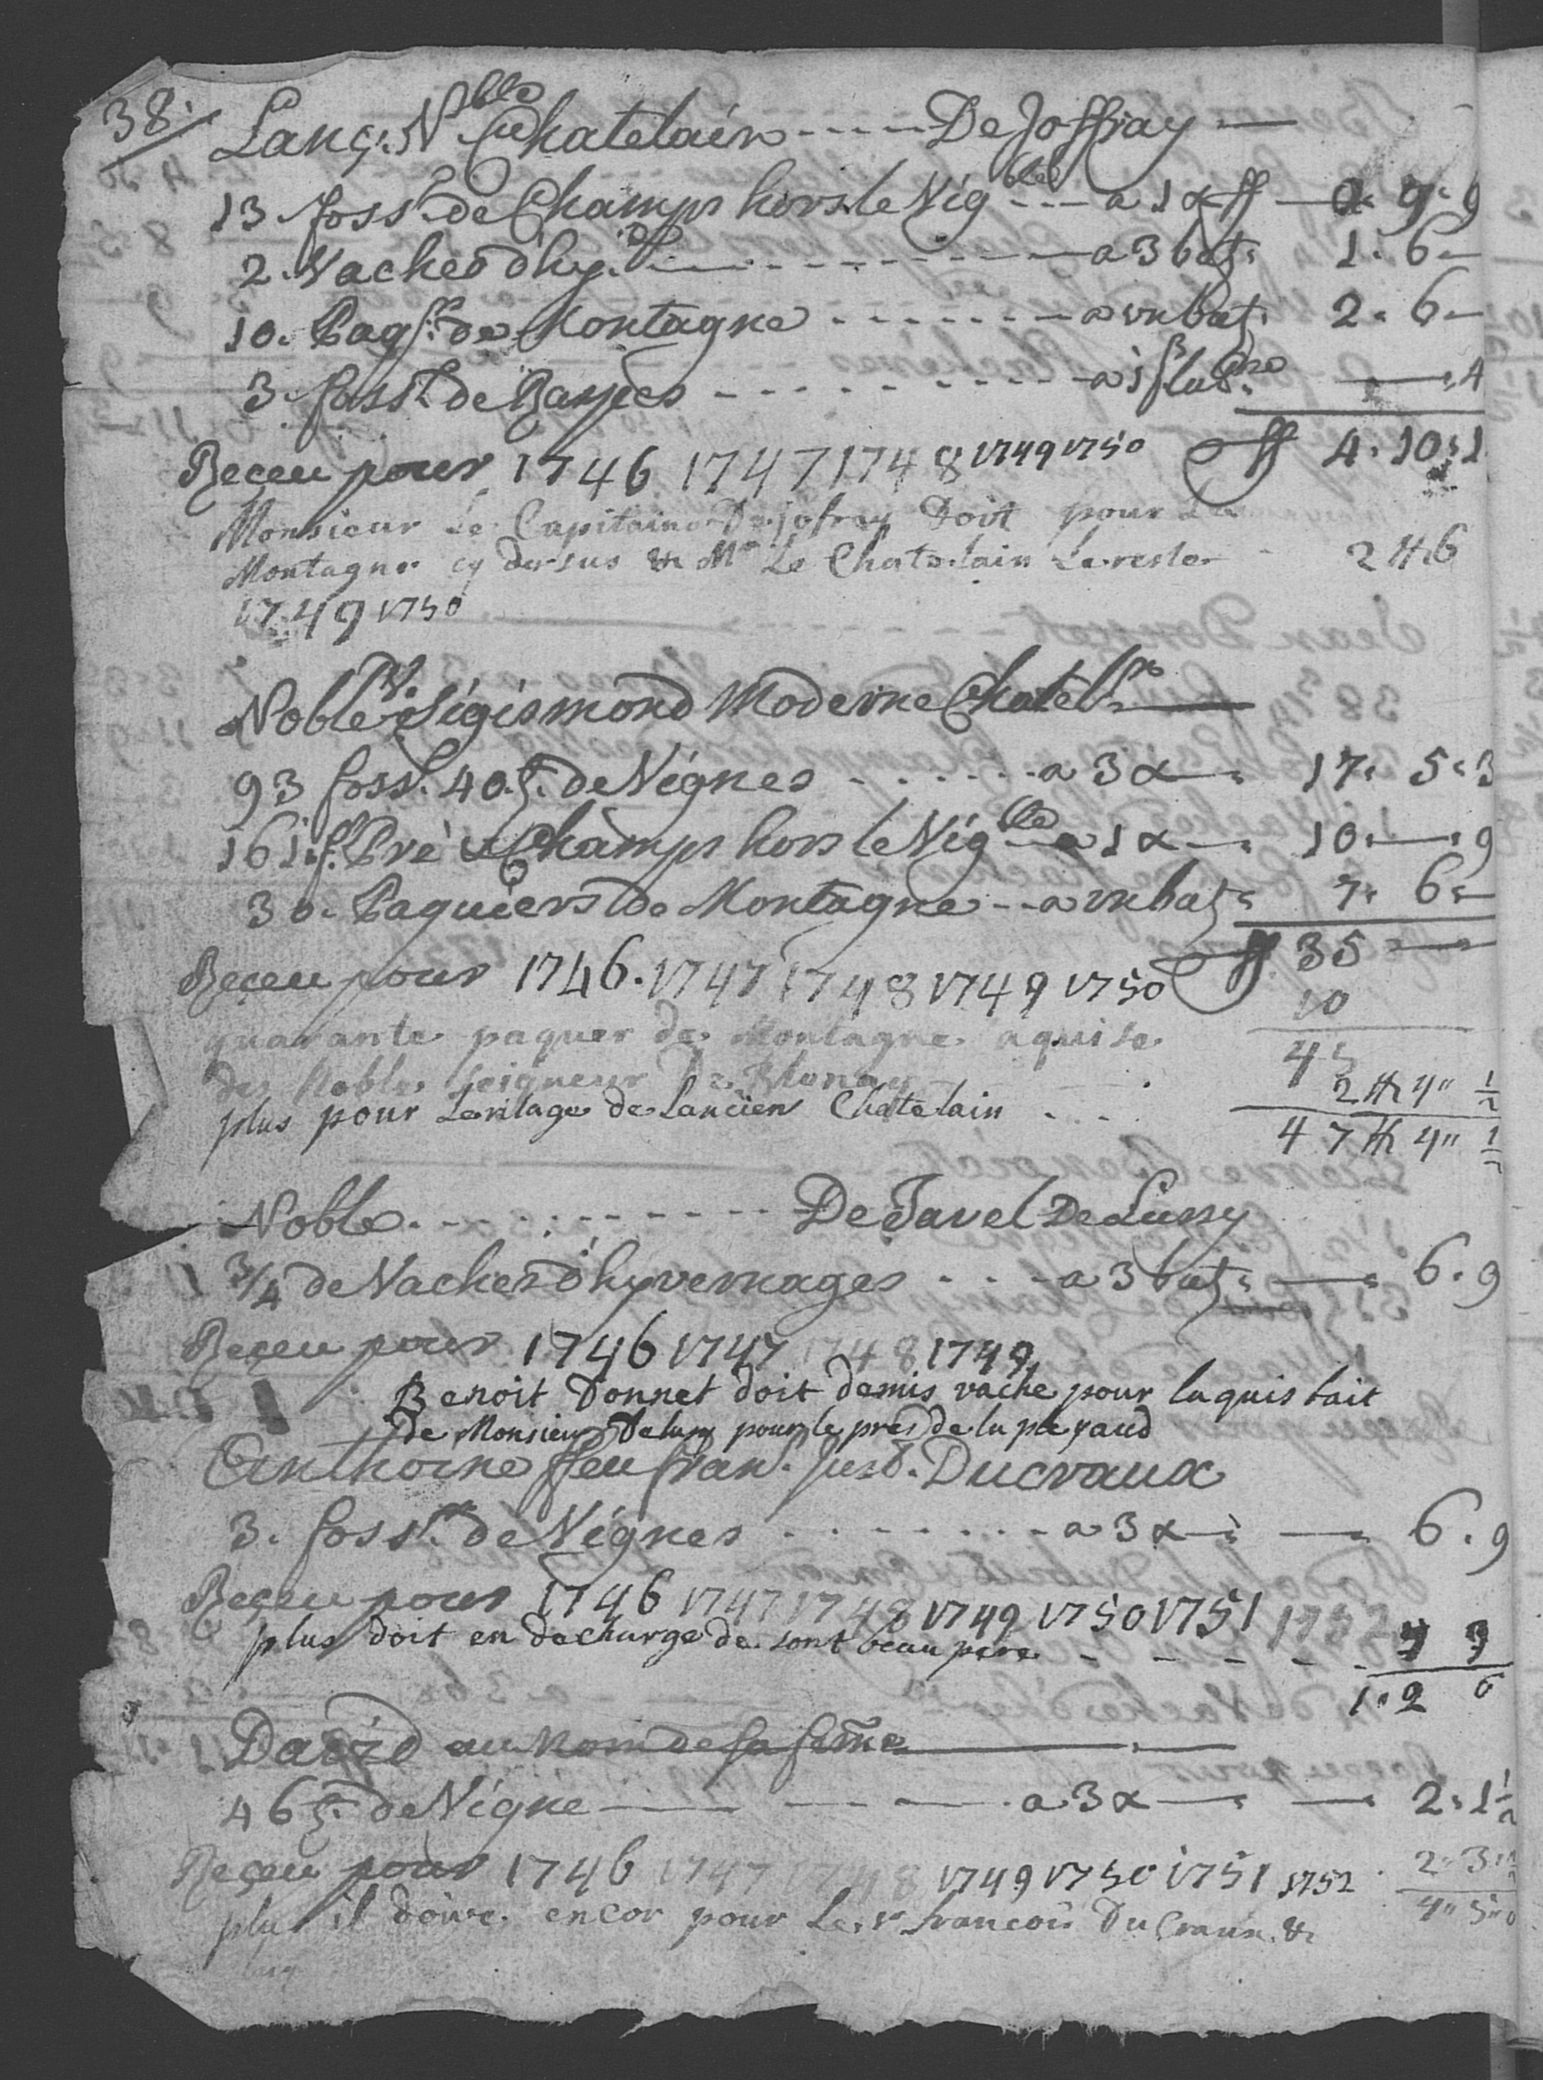 38.
Lanç. Nble Chatelain ---- De Joffray —
13 foss.r de Champs hors le Vigble --- a 1 x ff — 0. 9. 9
2. Vaches d'hy. — a 3 batz. 1. 6 —
10. Paq.rs de Montagne ------- a vn batz. 2. 6 —
3. foss.r de Rappes --------- a 1 — . 4
Reçeu pour 1746 1747 1748 1749 1750 ff 4. 10. 1
Monsieur Le Capitaine De jofray Doit pour La
Montagne cy desus & Mr Le Chatelain Le reste - 2 ff. 6
1749 1750
Noble Sigismond Moderne Chatel.n
93 foss.r 40 . de Vignes ------ a 3 x — . 17. 5. 3
161. f.r Prè & Champs hors le Vigble — a 1 x — . 10. — . 9
30. Paquiers de Montagne -- a vn batz. 7. 6. —
ff 35 —
Reçeu pour 1746. 1747 1748 1749 1750
10
quarante paquer de Montagne aquise
45
de Noble Seigneur De Blonay
plus pour Leritage de Lancien Chatelain . . . 2 ff 4" 1/2
47 ff 4" 1/2
Noble. ---------- De Tavel De Lussy
3/4 de Vaches d'hyvernages ---- a 3 batz. — . 6. 9
Reçeu pour 1746 1747 1748 1749
Benoit Donnet doit demis vache pour laquis fait
de Monsieur Delussy pour le pres de la
Anthoine ffeu fran. Ducraux
3. foss.r de Vignes -------- a 3 x — . — . 6. 9
Reçeu pour 1746 1747 1748 1749 1750 1751 1752
plus doit en decharge de sont beau pere - - - - - - 3
1. 2 6
au nom de sa feme
46 . de Vigne — a 3 x — . — . 2. 1 1/2
Reçeu pour 1746 1747 1748 1749 1750 1751 1752 . 2. 3. 1/2
4" 5" 0
plus il doive encor pour Le Sr francois Du Craux &